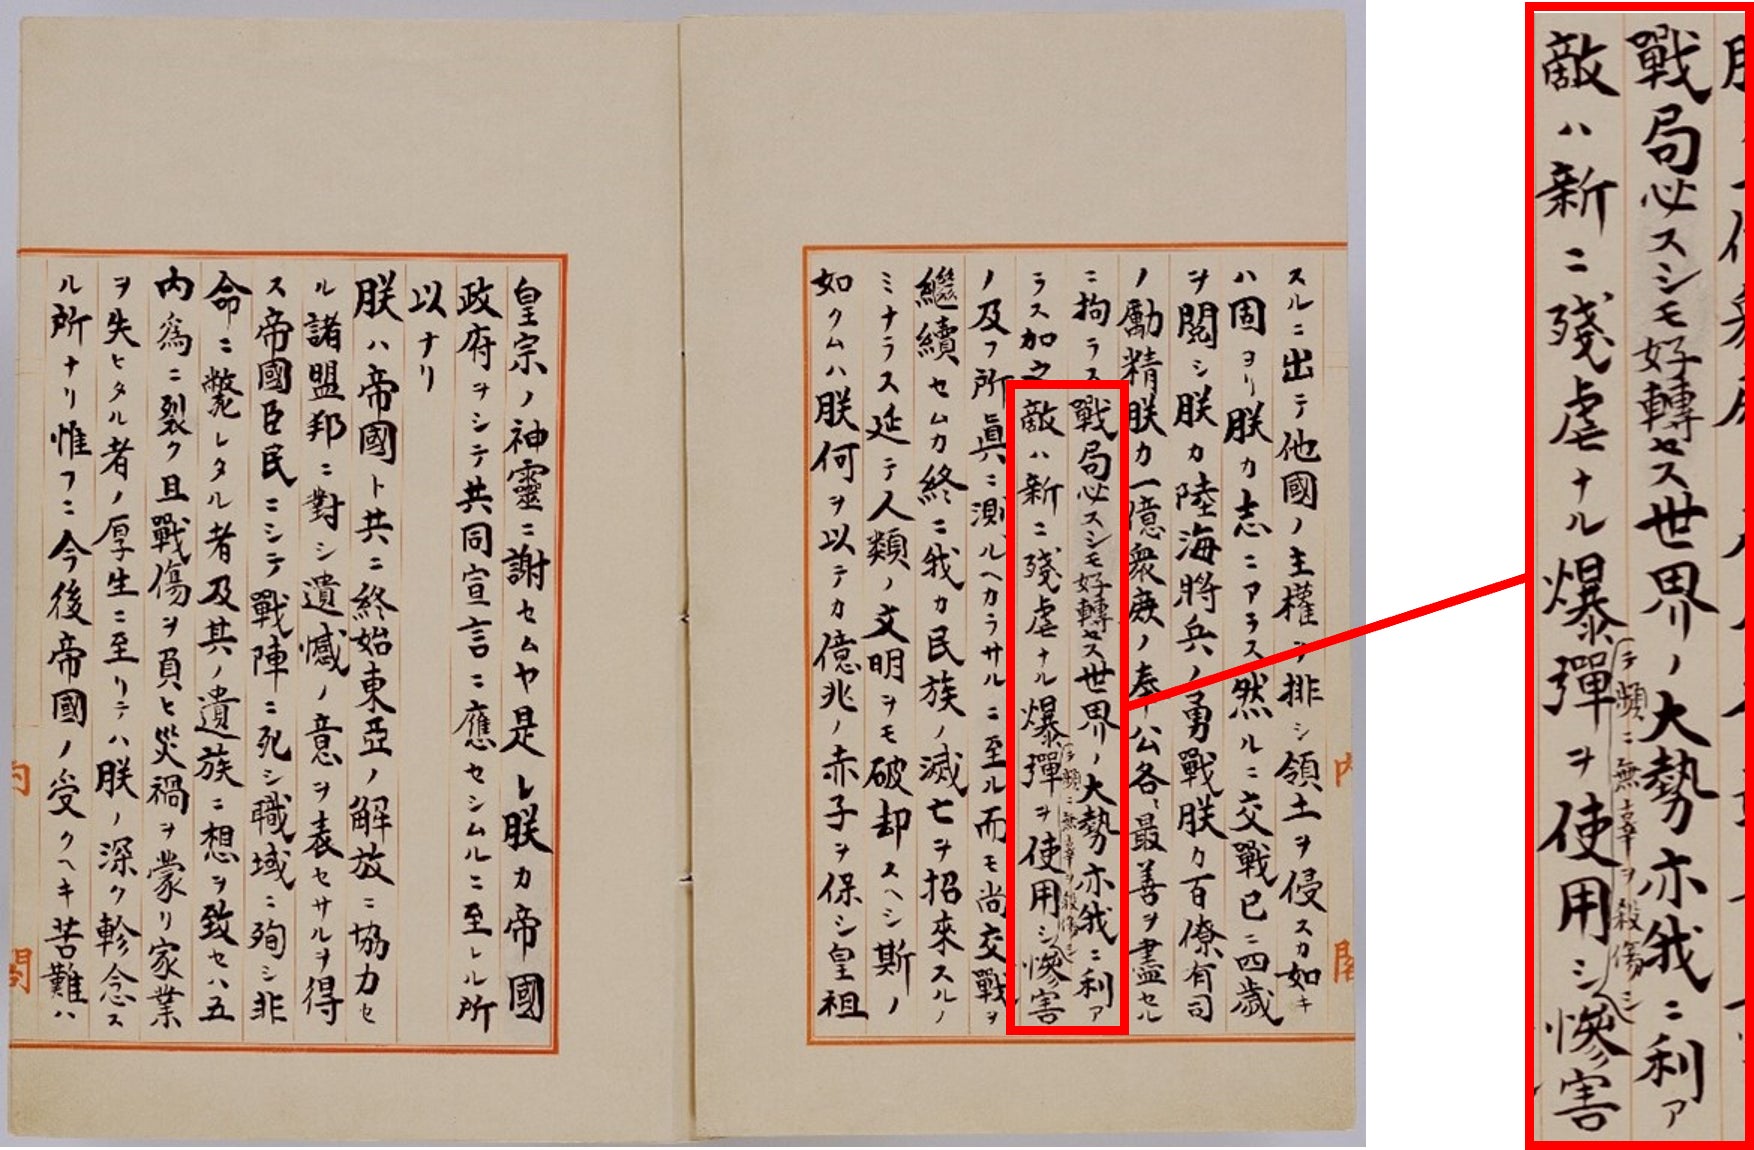 スルニ出テ他國ノ主權ヲ排シ領土ヲ侵スカ如キ
ハ固ヨリ朕カ志ニアラス然ルニ交戰已ニ四歲
ヲ閲シ朕カ陸海將兵ノ勇戰朕カ百僚有司
ノ勵精朕カ一億衆庶ノ奉公各〻最善ヲ盡セル
ニ拘ラス戰局必スシモ好轉セス世界ノ大勢亦我ニ利ア
テ頻ニ無辜ヲ殺傷シ
ラス加之敵ハ新ニ殘虐ナル爆彈ヲ使用シ慘害
ノ及フ所眞ニ測ルヘカラサルニ至ル而モ尚交戰ヲ
繼續セムカ終ニ我カ民族ノ滅亡ヲ招來スルノ
ミナラス延テ人類ノ文明ヲモ破却スヘシ斯ノ
如クムハ朕何ヲ以テカ億兆ノ赤子ヲ保シ皇祖
内閣
皇宗ノ神靈ニ謝セムヤ是レ朕カ帝國
政府ヲシテ共同宣言ニ應セシムルニ至レル所
以ナリ
朕ハ帝國ト共ニ終始東亞ノ解放ニ協力セ
ル諸盟邦ニ對シ遺憾ノ意ヲ表セサルヲ得
ス帝國臣民ニシテ戰陣ニ死シ職域ニ殉シ非
命ニ斃レタル者及其ノ遺族ニ想ヲ致セハ五
内爲ニ裂ク且戰傷ヲ負ヒ災禍ヲ蒙リ家業
ヲ失ヒタル者ノ厚生ニ至リテハ朕ノ深ク軫念ス
ル所ナリ惟フニ今後帝國ノ受クヘキ苦難ハ
内閣
戰局必スシモ好轉セス世界ノ大勢亦我ニ利ア
テ頻ニ無辜ヲ殺傷シ
敵ハ新ニ殘虐ナル爆彈ヲ使用シ慘害